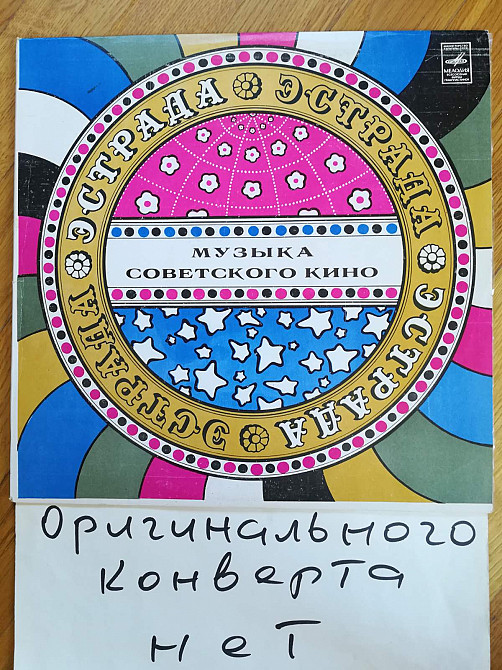 МЕЛОДИЯ
ЭСТРАДА ЭСТРАДА ЭСТРАДА ЭСТРАДА
МУЗЫКА
СОВЕТСКОГО КИНО
Оригинального
конверта
нет